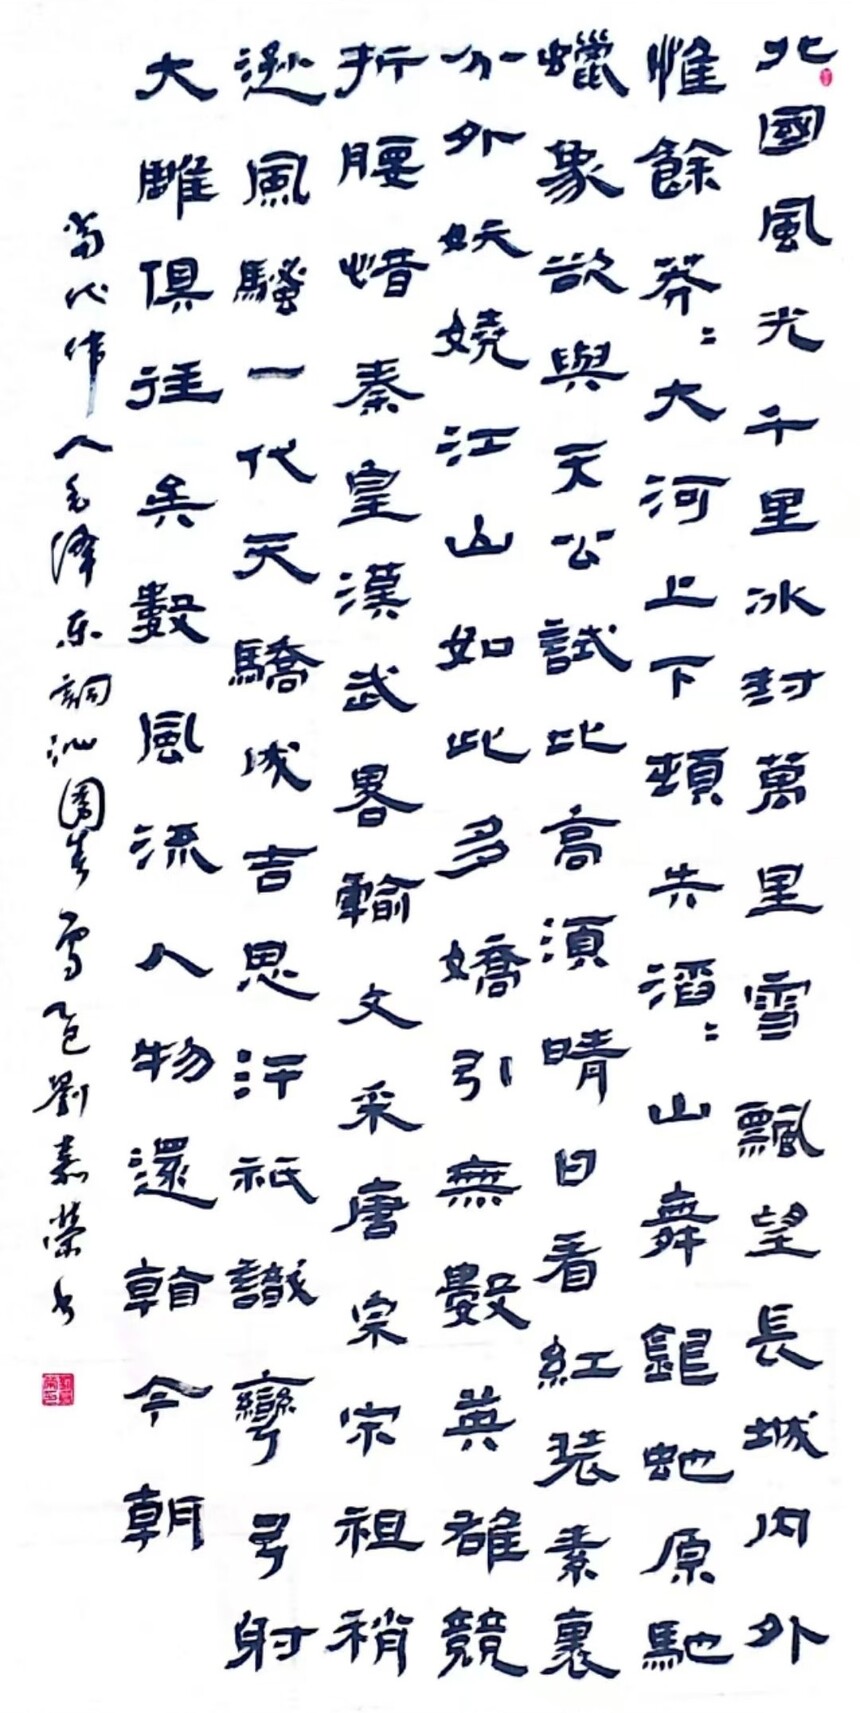 北國風光千里冰封萬里雪飄望長城內外
惟餘莽〻大河上下頓失滔〻山舞銀蛇原馳
蠟象欲與天公試比高須晴日看紅裝素裹
分外妖嬈江山如此多嬌引無數英雄競
折腰惜秦皇漢武畧輸文采唐宗宋祖稍
遜風騷一代天驕成吉思汗祇識彎弓射
大雕俱往矣數風流人物還看今朝
当代伟人毛泽东詞沁園春雪邑劉嘉榮书